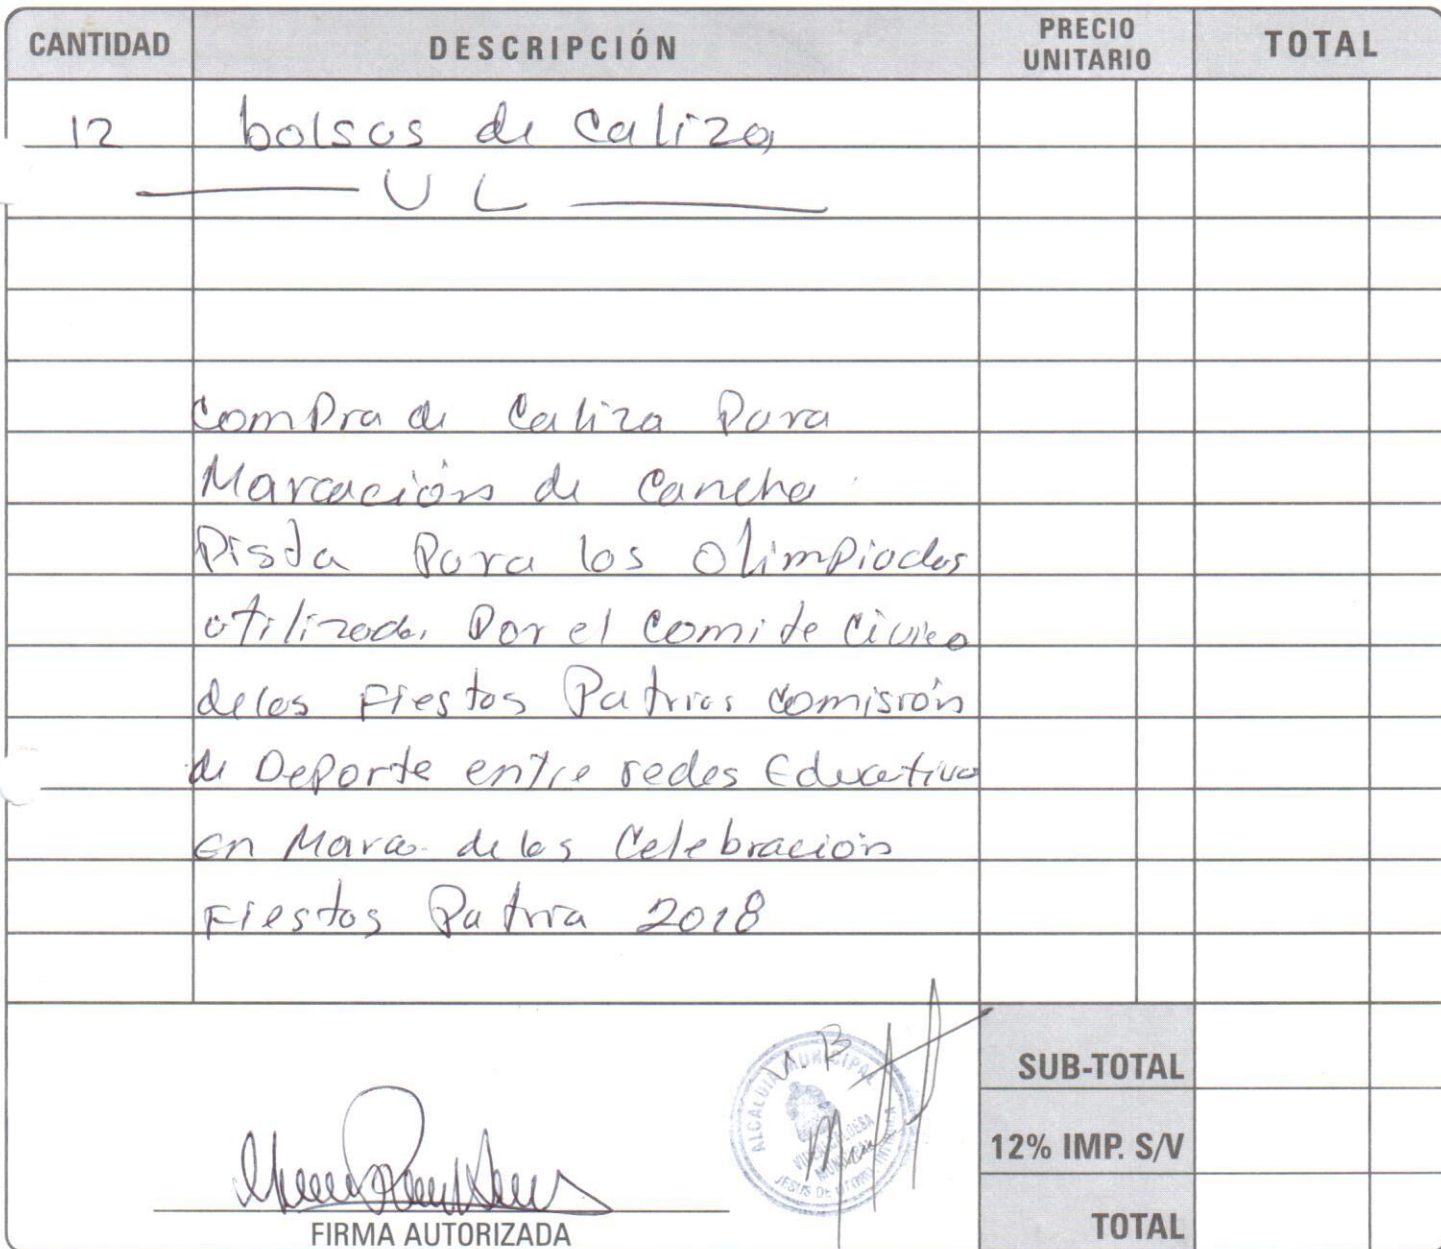 CANTIDAD DESCRIPCIÓN PRECIO UNITARIO TOTAL
12 bolsas de Caliza
UL
Compra de Caliza Para
Marcación de Cancha
Pista Para las Olimpiadas
utilizada Por el Comite Civico
de las Fiestas Patrias Comisión
de Deporte entre redes Educativa
en Marco de las Celebración
Fiestas Patria 2018
VB
ALCALDIA MUNICIPAL
VICE ALCALDESA
MUNICIPAL
JESUS DE OTORO INTIBUCA
SUB-TOTAL
12% IMP. S/V
TOTAL
FIRMA AUTORIZADA